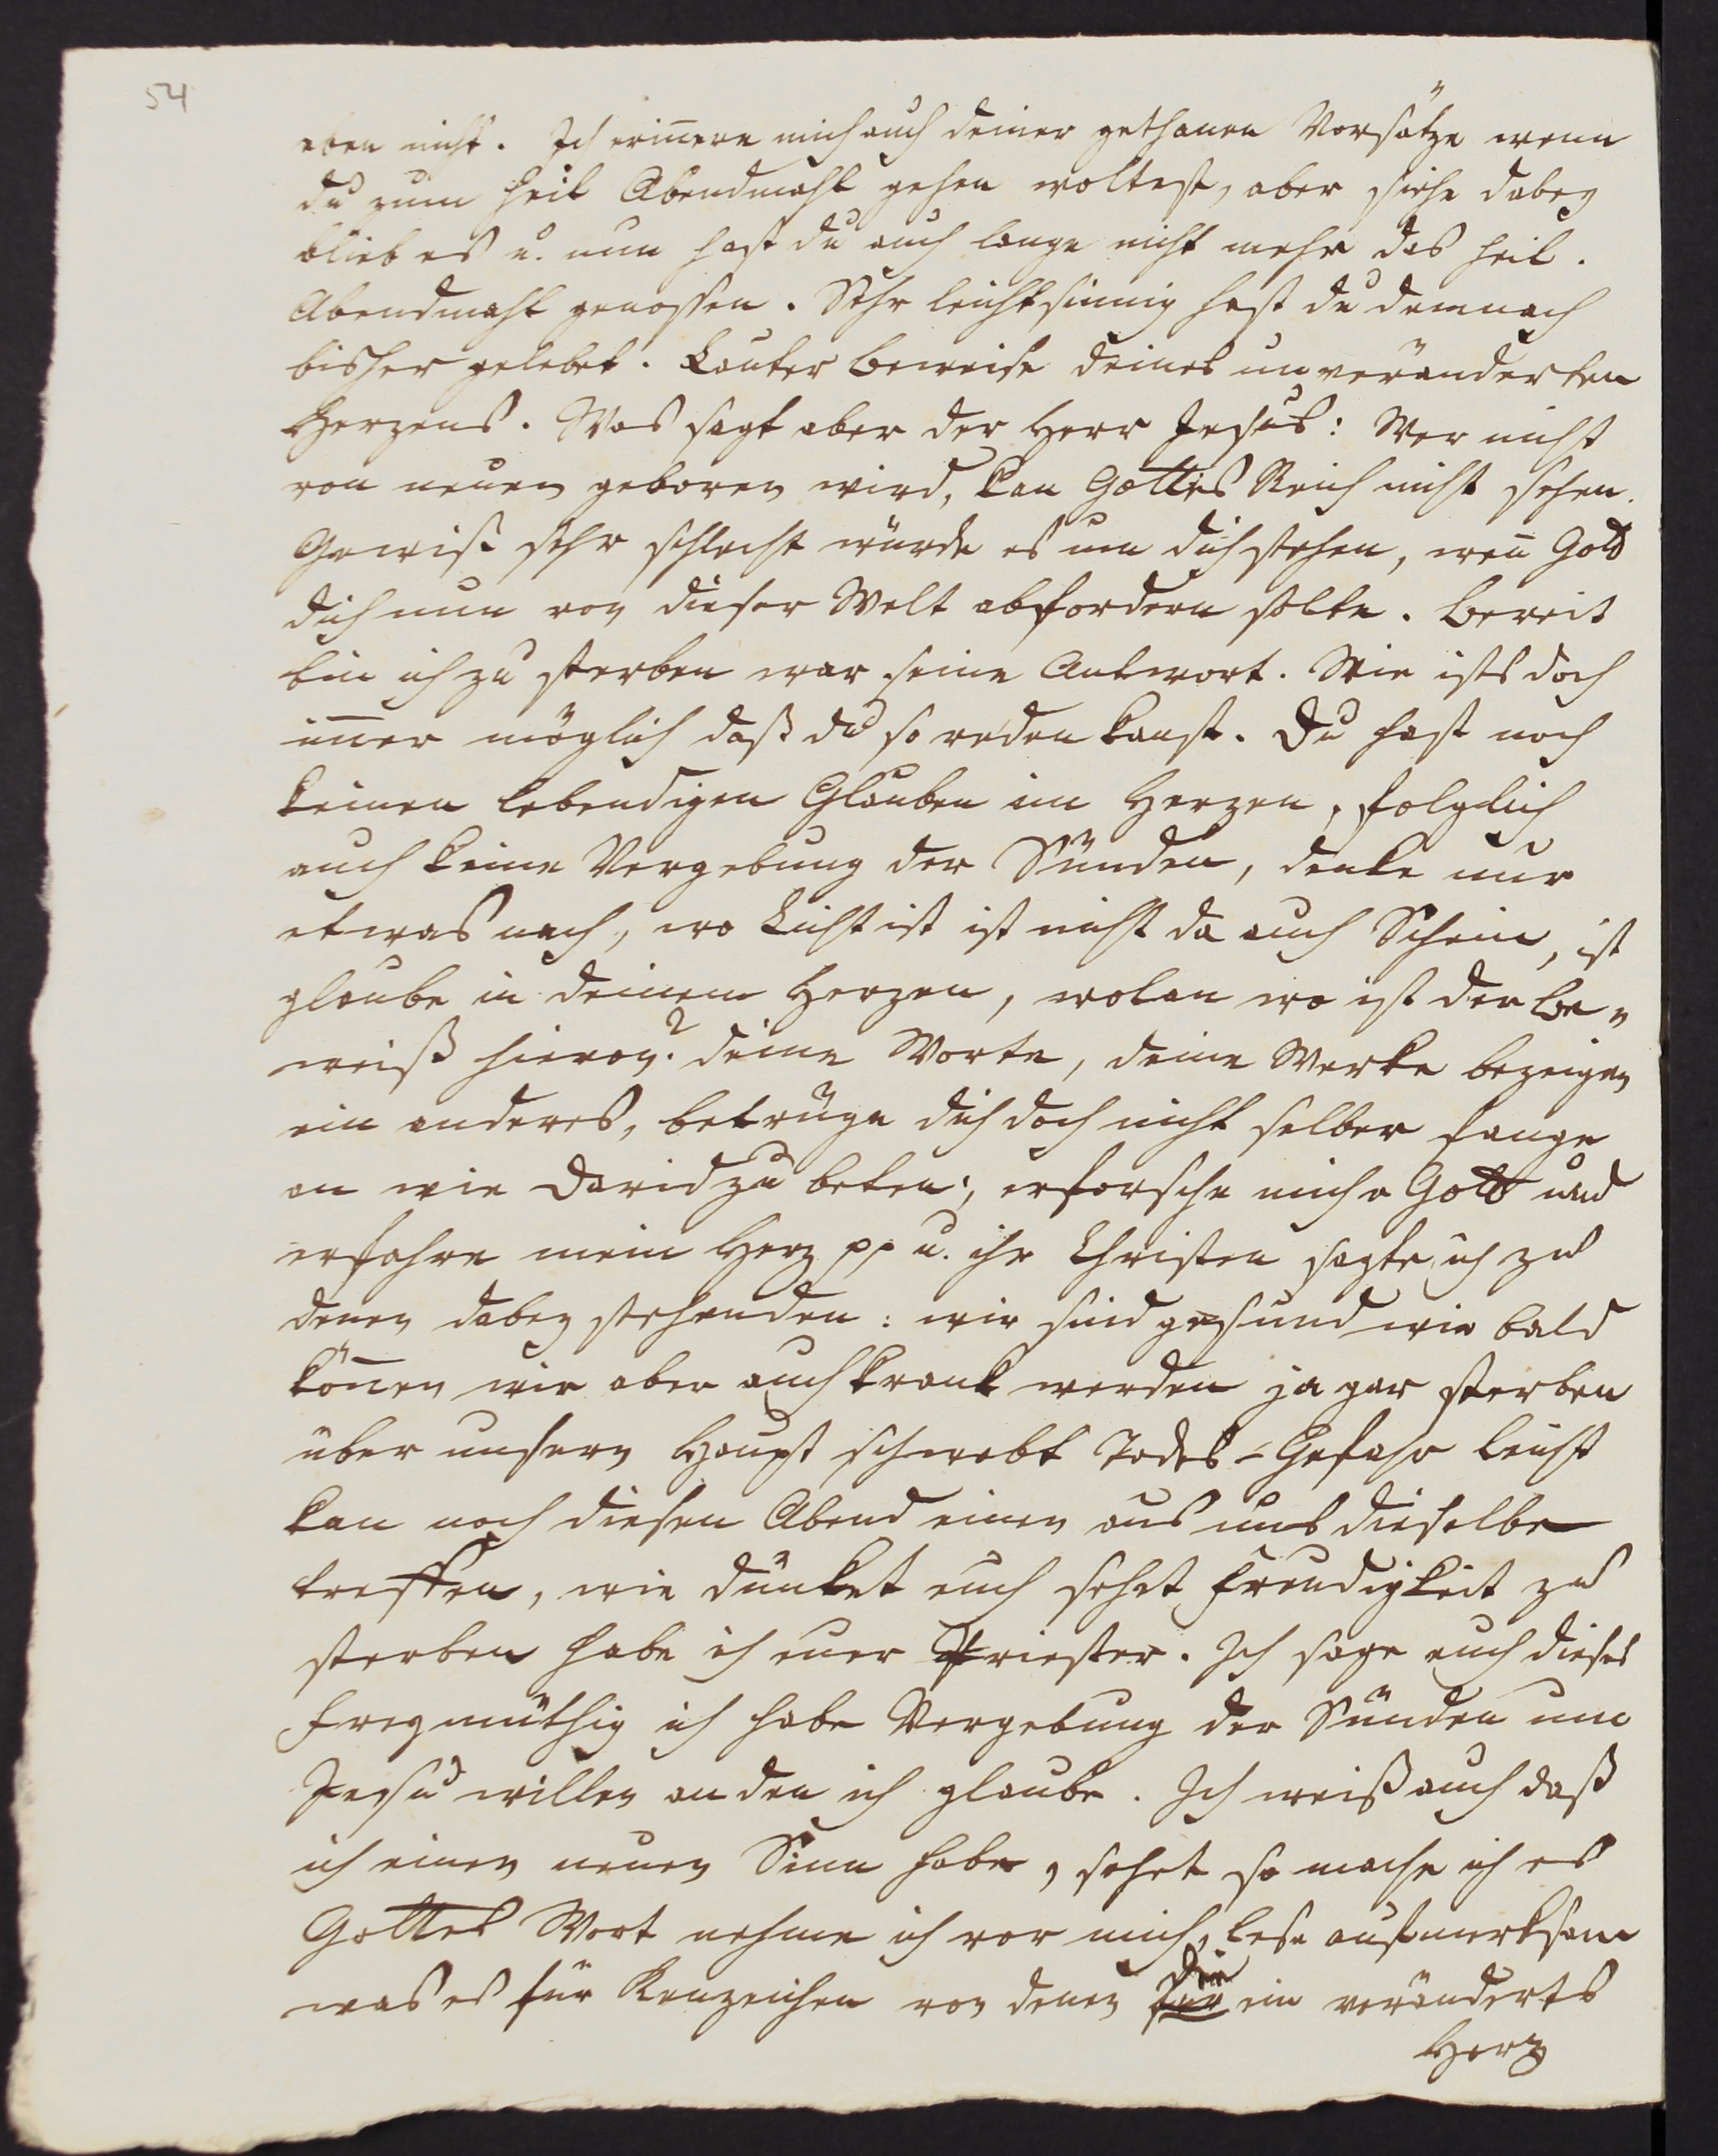 54
eben nicht. Ich erin̄ere mich auch deiner gethanen Vorsätze wenn
du zum heil Abendmahl gehen woltest, aber siehe dabey
blieb es u. nun hast du auch lange nicht mehr das heil.
Abendmahl genossen. Sehr leichtsinnig hast du demnach
bisher gelebet. Lauter Beweise deines unveränderten
Herzens. Was sagt aber der Herr Jesus: Wer nicht
von neuen geboren wird, kan Gottes Reich nicht sehen.
Gewiß sehr schlecht würde es um dich stehen, wen̄ Gott
dich nun von dieser Welt abfordern solte. Bereit
bin ich zu sterben war seine Antwort. Wie ists doch
im̄er möglich daß du so reden kanst. Du hast noch
keinen lebendigen Glauben im Herzen, folglich
auch keine Vergebung der Sünden, denke nur
etwas nach, wo Licht ist ist nicht da auch Schein, ist
glaube in deinem Herzen, wolan wo ist der Be„
weiß hievon? deine Worte, deine Werke bezeigen
ein anderes, betrüge dich doch nicht selber fange
an wie David zu beten:, erforsche mich o Gott und
erfahre mein Herz pp u. ihr Christen sagte ich zu
denen dabey stehenden: wir sind gesund wie bald
kön̄en wir aber auch krank werden ja gar sterben
über unsern Haupt schwebt Todes-Gefahr leicht
kan noch diesen Abend einen aus uns dieselbe
treffen, wie dünket euch sehet Freudigkeit zu
sterben habe ich euer Priester. Ich sage auch dieses
freymüthig ich habe Vergebung der Sünden um
Jesu willen an den ich glaube. Ich weiß auch daß
ich einen neuen Sinn habe, sehet so mache ich es
Gottes Wort nehme ich vor mich, lese aufmerksam
was es für Kenzeichen von denen für die ein veränderts
Herz